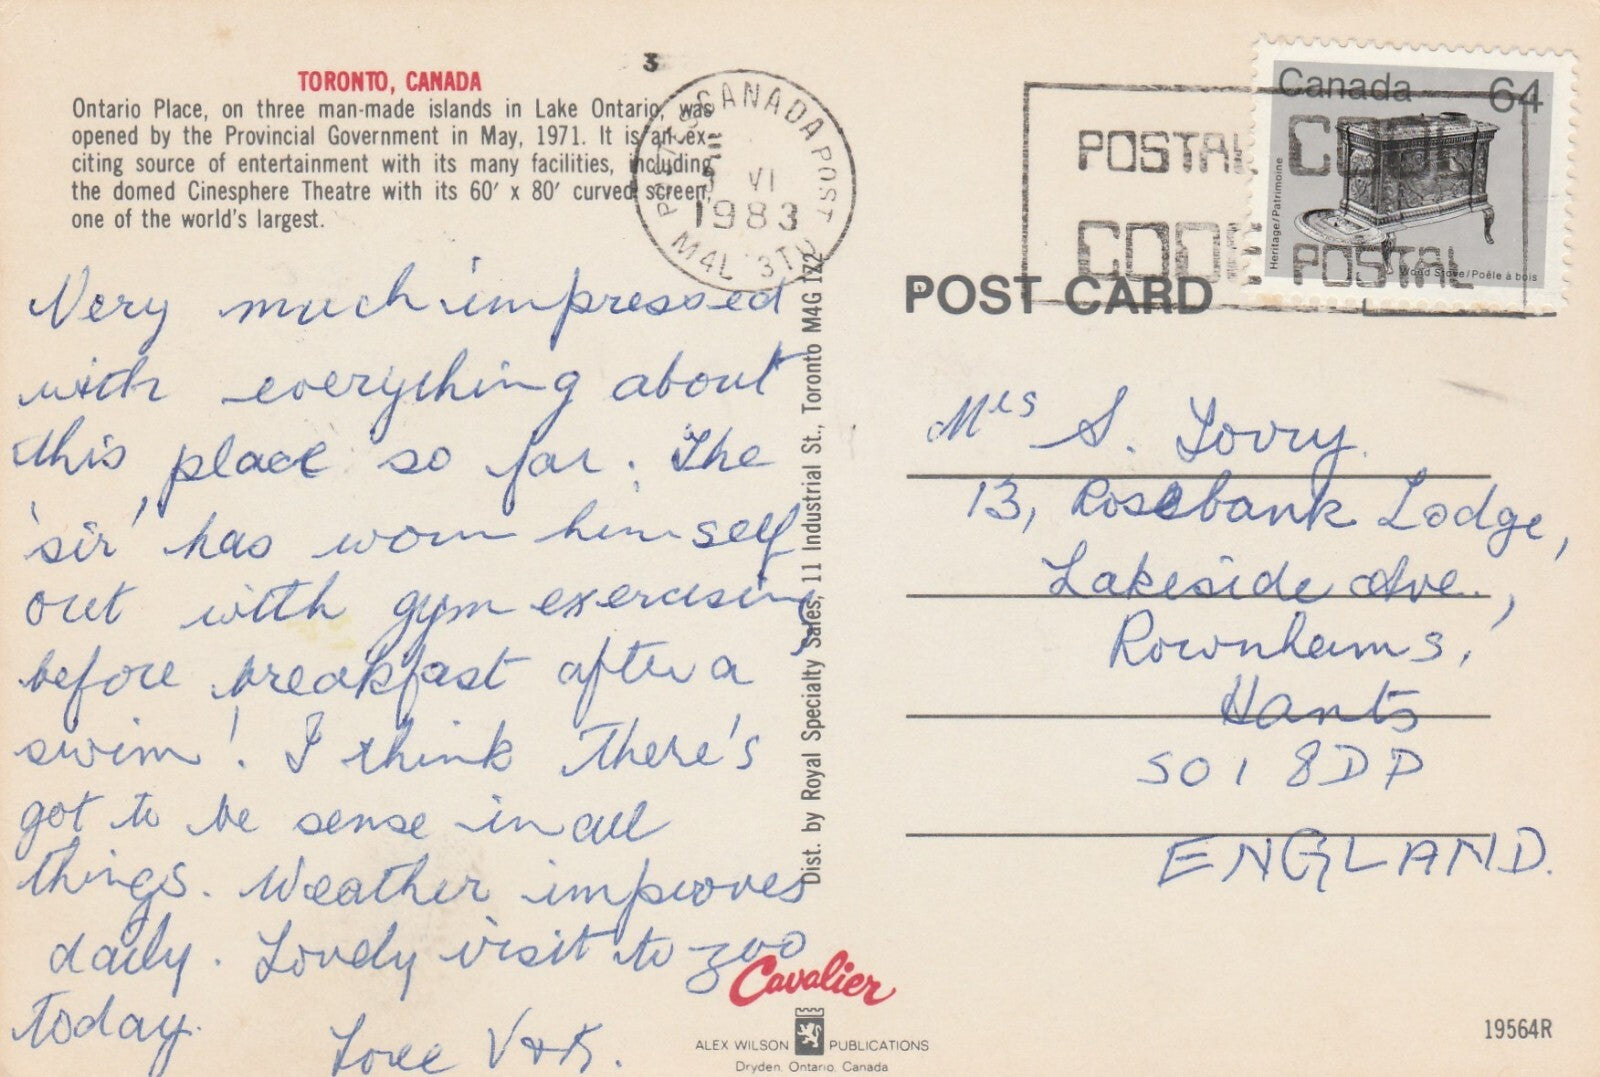 TORONTO, CANADA
Ontario Place, on three man-made islands in Lake Ontario, was
opened by the Provincial Government in May, 1971. It is an ex-
citing source of entertainment with its many facilities, including
the domed Cinesphere Theatre with its 60' x 80' curved screen,
one of the world's largest.
Very much impressed
with everything about
this place so far. The
'sir' has worn himself
out with gym exercising
before breakfast after a
swim! I think there's
got to be sense in all
things. Weather improves
daily. Lovely visit to zoo
today.
Love V & K.
Dist. by Royal Specialty Sales, 11 Industrial St., Toronto M4G 1Z2
3
CANADA POST
VI
1983
M4L 3T
POSTAL CODE
CODE POSTAL
Canada 64
Heritage/Patrimoine
Wood Stove/Poêle à bois
POST CARD
Mrs S. Lovry.
13, Rosebank Lodge,
Lakeside Ave.,
Rownhams,
Hants
SO1 8DP
ENGLAND.
Cavalier
ALEX WILSON PUBLICATIONS
Dryden, Ontario, Canada
19564R